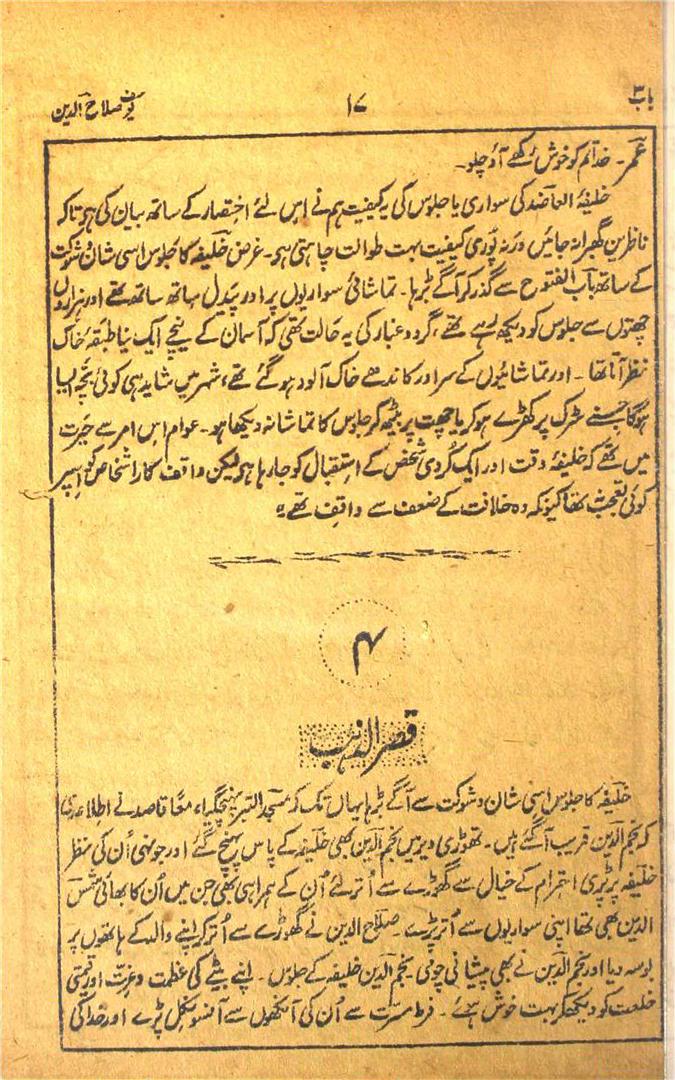 باب ۳ ۱۷ یوسف صلاح الدین
عمر۔ خدا تم کو خوش رکھے آؤ چلو۔
خلیفۂ العاضد کی سواری یا جلوس کی یہ کیفیت ہم نے اس لئے اختصار کے ساتھ بیان کی ہو تاکہ
ناظرین گھبرا نہ جائیں ورنہ پوری کیفیت بہت طوالت چاہتی ہو۔ غرض خلیفہ کا جلوس اسی شان و شوکت
کے ساتھ باب الفتوح سے گذر کر آگے بڑہا۔ تماشائی سواریوں پر اور پیدل ساتھ ساتھ تھے اور ہزاروں
چھتوں سے جلوس کو دیکھ رہے تھے، گرد و غبار کی یہ حالت تھی کہ آسمان کے نیچے ایک نیا طبقۂ خاک
نظر آتا تھا۔ اور تماشائیوں کے سر اور کاندھے خاک آلود ہو گئے تھے، شہر میں شاید ہی کوئی بچہ ایسا
ہوگا جسنے سڑک پر کھڑے ہو کر یا چھت پر بیٹھ کر جلوس کا تماشا نہ دیکھا ہو۔ عوام اس امر سے حیرت
میں تھے کہ خلیفۂ وقت اور ایک کردی شخص کے استقبال کو جا رہا ہو لیکن واقف کار اشخاص کو اسپر
کوئی تعجب نہ تھا کیونکہ وہ خلافت کے ضعف سے واقف تھے۔
۴
قصر الذہب
خلیفہ کا جلوس اسی شان و شوکت سے آگے بڑہا یہاں تک کہ مسجد التبر پہنچ گیا، معًا قاصد نے اطلاع دی
کہ نجم الدین قریب آ گئے ہیں۔ تھوڑی دیر میں نجم الدین بھی خلیفہ کے پاس پہنچ گئے اور جونہی اُن کی نظر
خلیفہ پر پڑی احترام کے خیال سے گھوڑے سے اُتر لئے اُن کے ہمراہی بھی جن میں اُن کا بھائی شمس
الدین بھی تھا اپنی سواریوں سے اُتر پڑے۔ صلاح الدین نے گھوڑے سے اُتر کر اپنے والد کے ہاتھوں پر
بوسہ دیا اور نجم الدین نے بھی پیشانی چومی۔ نجم الدین خلیفہ کے جلوس۔ اپنے بیٹے کی عظمت و عزت اور قیمتی
خلعت کو دیکھکر بہت خوش ہوئے۔ فرط مسرت سے اُن کی آنکھوں سے آنسو نکل پڑے اور خدا کی